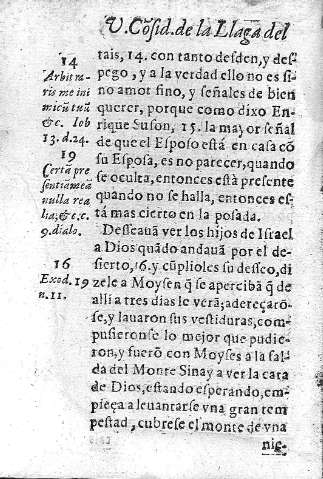 V. Cõsid. de la Llaga del
14
Arbitra-
ris me ini
micũ tuũ
&c. Iob
13. d. 24.
19
Certa pre
sentia mea
nulla rea
&c.
9. dialo.
16
Exod. 19
n. 11.
tais, 14. con tanto desden, y des
pego, y a la verdad ello no es si-
no amot fino, y señales de bien
querer, porque como dixo En-
rique Suson, 15. la mayor señal
de que el Esposo està en casa cõ
su Esposa, es no parecer, quando
se oculta, entonces està presente
quando no se halla, entonces es-
tá mas cierto en la posada.
Desseauã ver los hijos de Israel
a Dios quãdo andauã por el de-
sierto, 16. y cũplioles su desseo, di
zele a Moysen q̃ se aperciba q̃ de
alli a tres dias le verã; adereçarõ-
se, y lauaron sus vestiduras, com-
pusieronse lo mejor que pudie-
ron, y fuerõ con Moyses a la fal-
da del Monte Sinay a ver la cara
de Dios, estando esperando, em-
pieça a leuantarse vna gran tem
pestad, cubrese el monte de vna
nie-